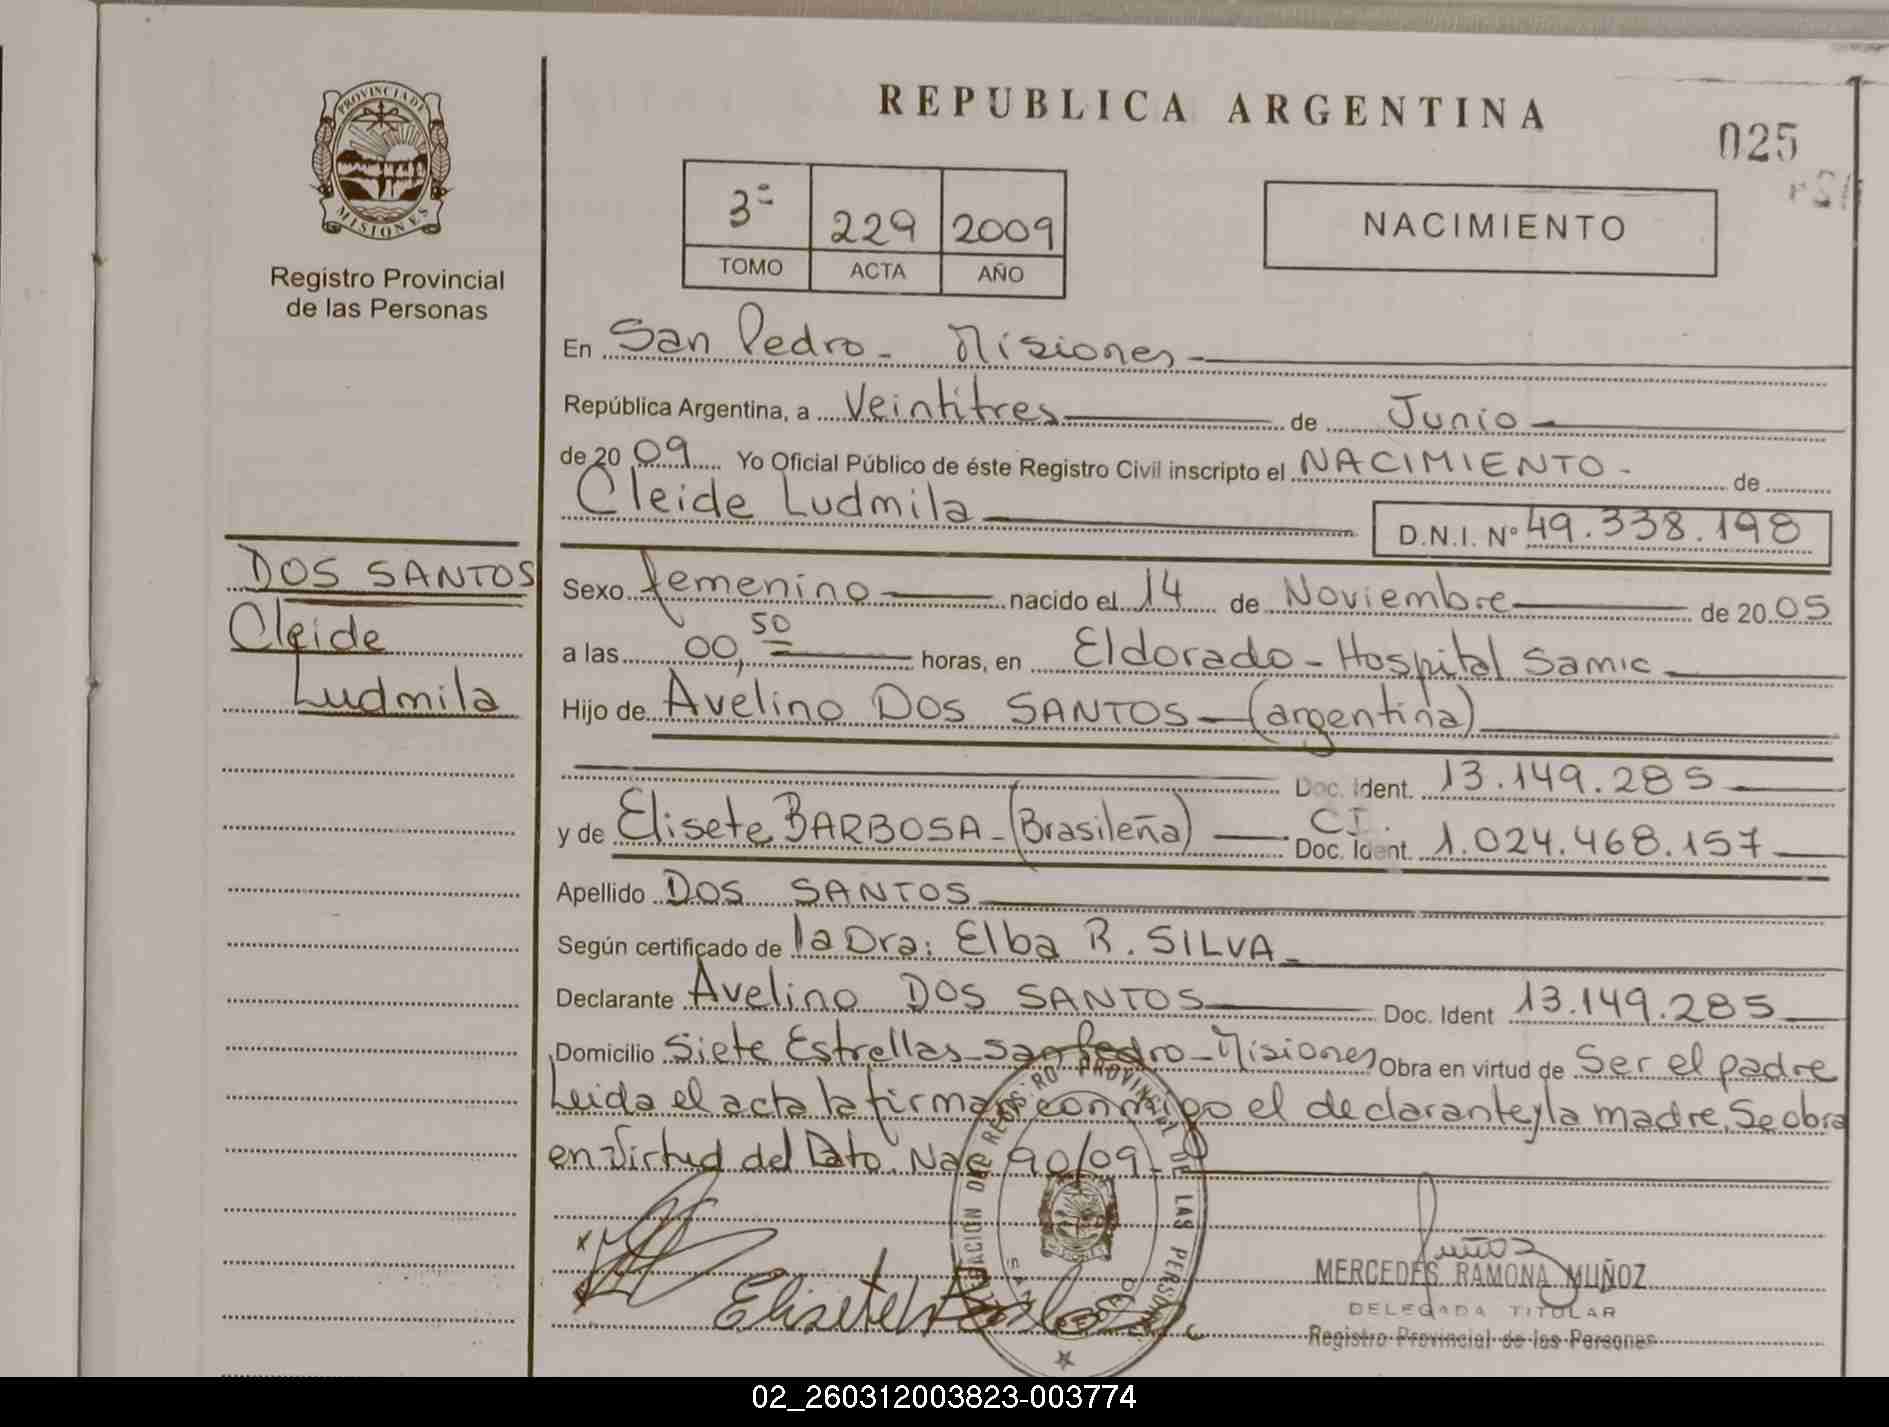 REPUBLICA ARGENTINA
025
PROVINCIA DE
MISIONES
Registro Provincial
de las Personas
3ª 229 2009
TOMO ACTA AÑO
NACIMIENTO
En San Pedro - Misiones
República Argentina, a Veintitres de Junio
de 20 09 Yo Oficial Público de éste Registro Civil inscripto el NACIMIENTO - de
Cleide Ludmila
D.N.I. Nº 49.338.198
DOS SANTOS
Cleide
Ludmila
Sexo femenino nacido el 14 de Noviembre de 20 05
a las 00,50 horas, en Eldorado - Hospital Samic
Hijo de Avelino DOS SANTOS - (argentina)
Doc. Ident. 13.149.285
y de Elisete BARBOSA - (Brasileña) C.I. Doc. Ident. 1.024.468.157
Apellido DOS SANTOS
Según certificado de la Dra: Elba R. SILVA -
Declarante Avelino DOS SANTOS Doc. Ident 13.149.285
Domicilio Siete Estrellas - San Pedro - Misiones Obra en virtud de Ser el padre
Leida el acta la firman conmigo el declarante y la madre, Se obra
en Virtud del Dato. Nac 90/09 -
REGISTRO PROVINCIAL DE LAS PERSONAS
Elisete
Muñoz
MERCEDES RAMONA MUÑOZ
DELEGADA TITULAR
Registro Provincial de las Personas
02_260312003823-003774